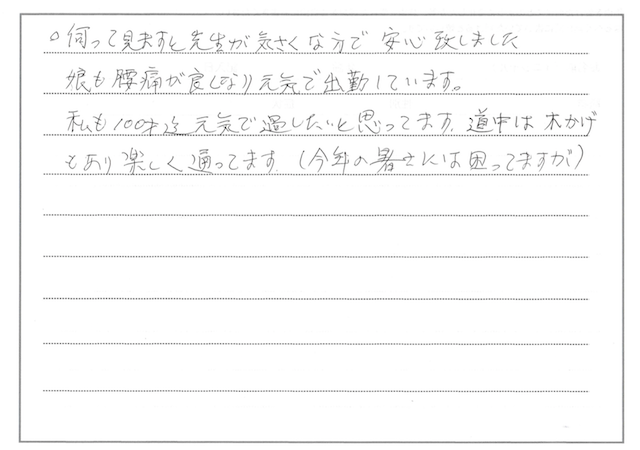 ○伺って見ますと先生が気さくな方で安心致しました
娘も腰痛が良くなり元気で出勤しています。
私も100才迄元気で過したいと思ってます。道中は木かげ
もあり楽しく通ってます(今年の暑さには困ってますが)